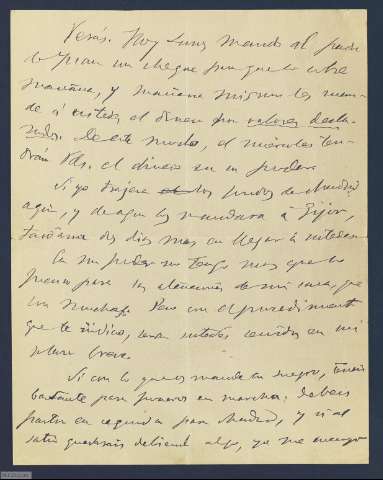 Verás. Hoy lunes mando al padre
de Juan un cheque para que lo cobre
mañana, y mañana mismo les man-
de á ustedes el dinero por valores decla-
rados. De este modo, el miércoles ten-
drán Vds. el dinero en su poder.
Si yo trajera los fondos de Madrid
aquí, y de aquí los mandara á Gijón,
tardarían dos días mas en llegar á ustedes.
En mi poder no tengo mas que lo
preciso para las atenciones de mi casa, que
son muchas. Pero con el procedimiento
que te indico, serán ustedes servidos en mi
plazo breve.
Si con lo que os manda su suegro, tenéis
bastante para poneros en marcha, debeis
partir en seguida para Madrid, y si al
salir quedarais debiendo algo, yo me encargo